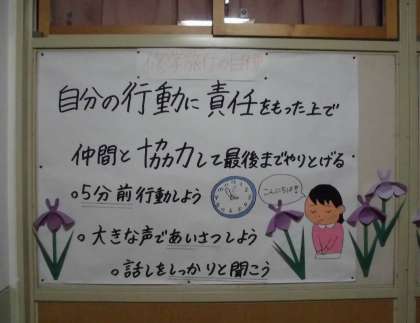 修学旅行の目標
自分の行動に責任をもった上で
仲間と協力して最後までやりとげる
○5分前行動しよう
こんにちは!
○大きな声であいさつしよう
○話しをしっかりと聞こう